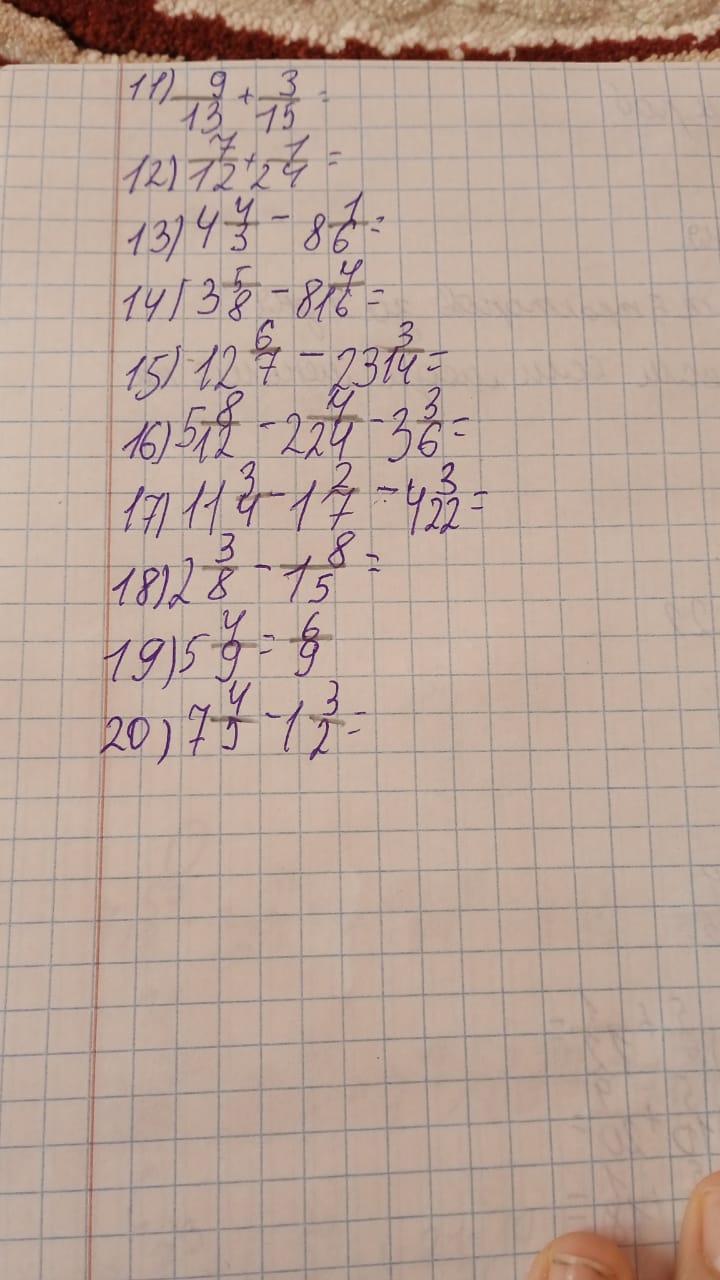 11) 9/13 + 3/15 =
12) 7/12 + 1/24 =
13) 4 4/3 - 8 1/6 =
14) 3 5/8 - 8 4/16 =
15) 12 6/7 - 23 3/14 =
16) 5 8/12 - 2 4/24 - 3 3/6 =
17) 11 3/4 - 1 2/7 - 4 3/22 =
18) 2 3/8 - 8/15 =
19) 5 4/9 = 6/9
20) 7 4/5 - 1 3/2 =